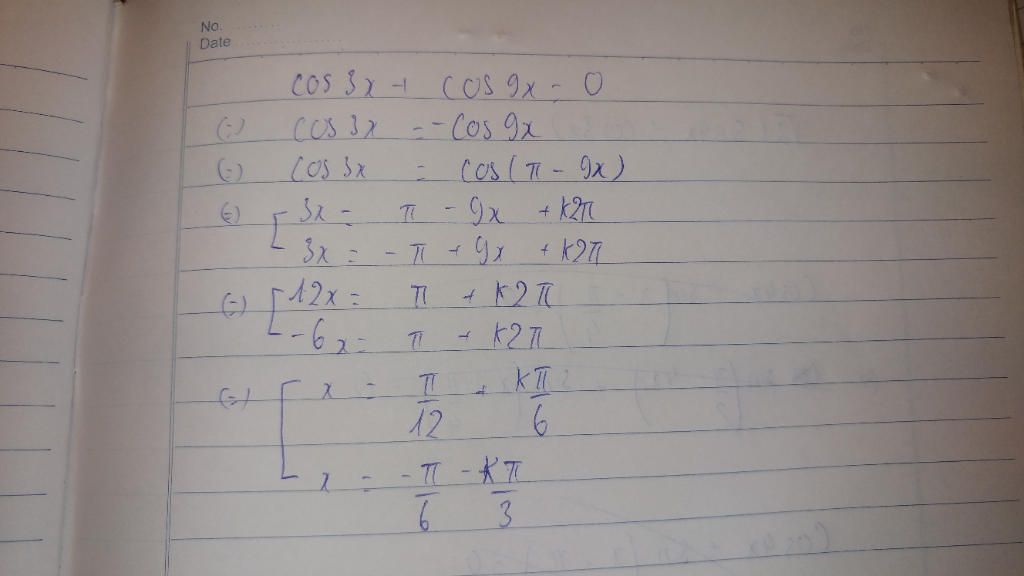 No.
Date
cos 3x + cos 9x = 0
(=) cos 3x = -cos 9x
(=) cos 3x = cos(π - 9x)
(=) [ 3x = π - 9x + k2π
3x = - π + 9x + k2π
(=) [ 12x = π + k2π
-6x = π + k2π
(=) [ x = π/12 + kπ/6
x = -π/6 - kπ/3